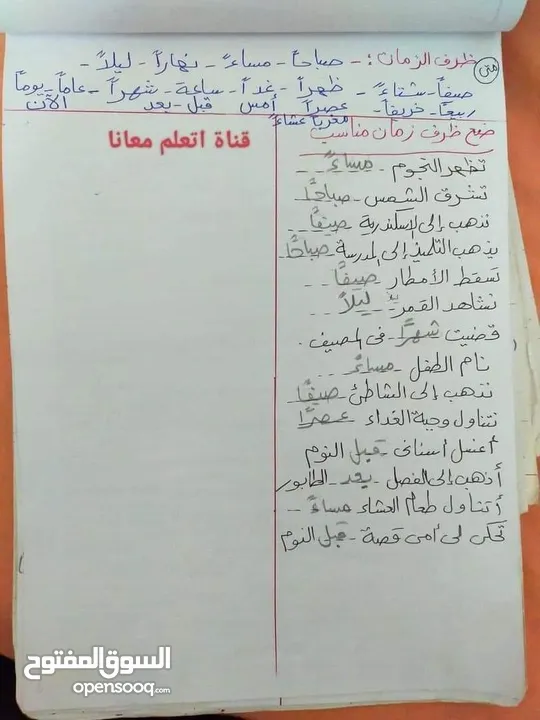 متى
ظرف الزمان :- صباحاً - مساءً - نهاراً - ليلاً -
صيفاً - شتاءً - ظهراً - غداً - ساعة - شهراً - عاماً - يوماً
ربيعاً - خريفاً - عصراً أمس قبل - بعد الآن
مغرباً عشاءً
ضع ظرف زمان مناسب
قناة اتعلم معانا
تظهر النجوم - مساءً - -
تشرق الشمس - صباحًا
نذهب إلى الإسكندرية صيفًا
يذهب التلميذ إلى المدرسة صباحًا
تسقط الأمطار صيفًا
نشاهد القمر ليلاً
قضيت شهرًا فى المصيف .
نام الطفل - مساءً
نذهب إلى الشاطئ صيفًا
نتناول وجبة الغداء عصرًا
أغسل أسنانى - قبل النوم
أذهب إلى الفصل - بعد - الطابور
أتناول طعام العشاء مساءً -
تحكى لى أمى قصة - قبل النوم
السوق المفتوح
opensooq.com